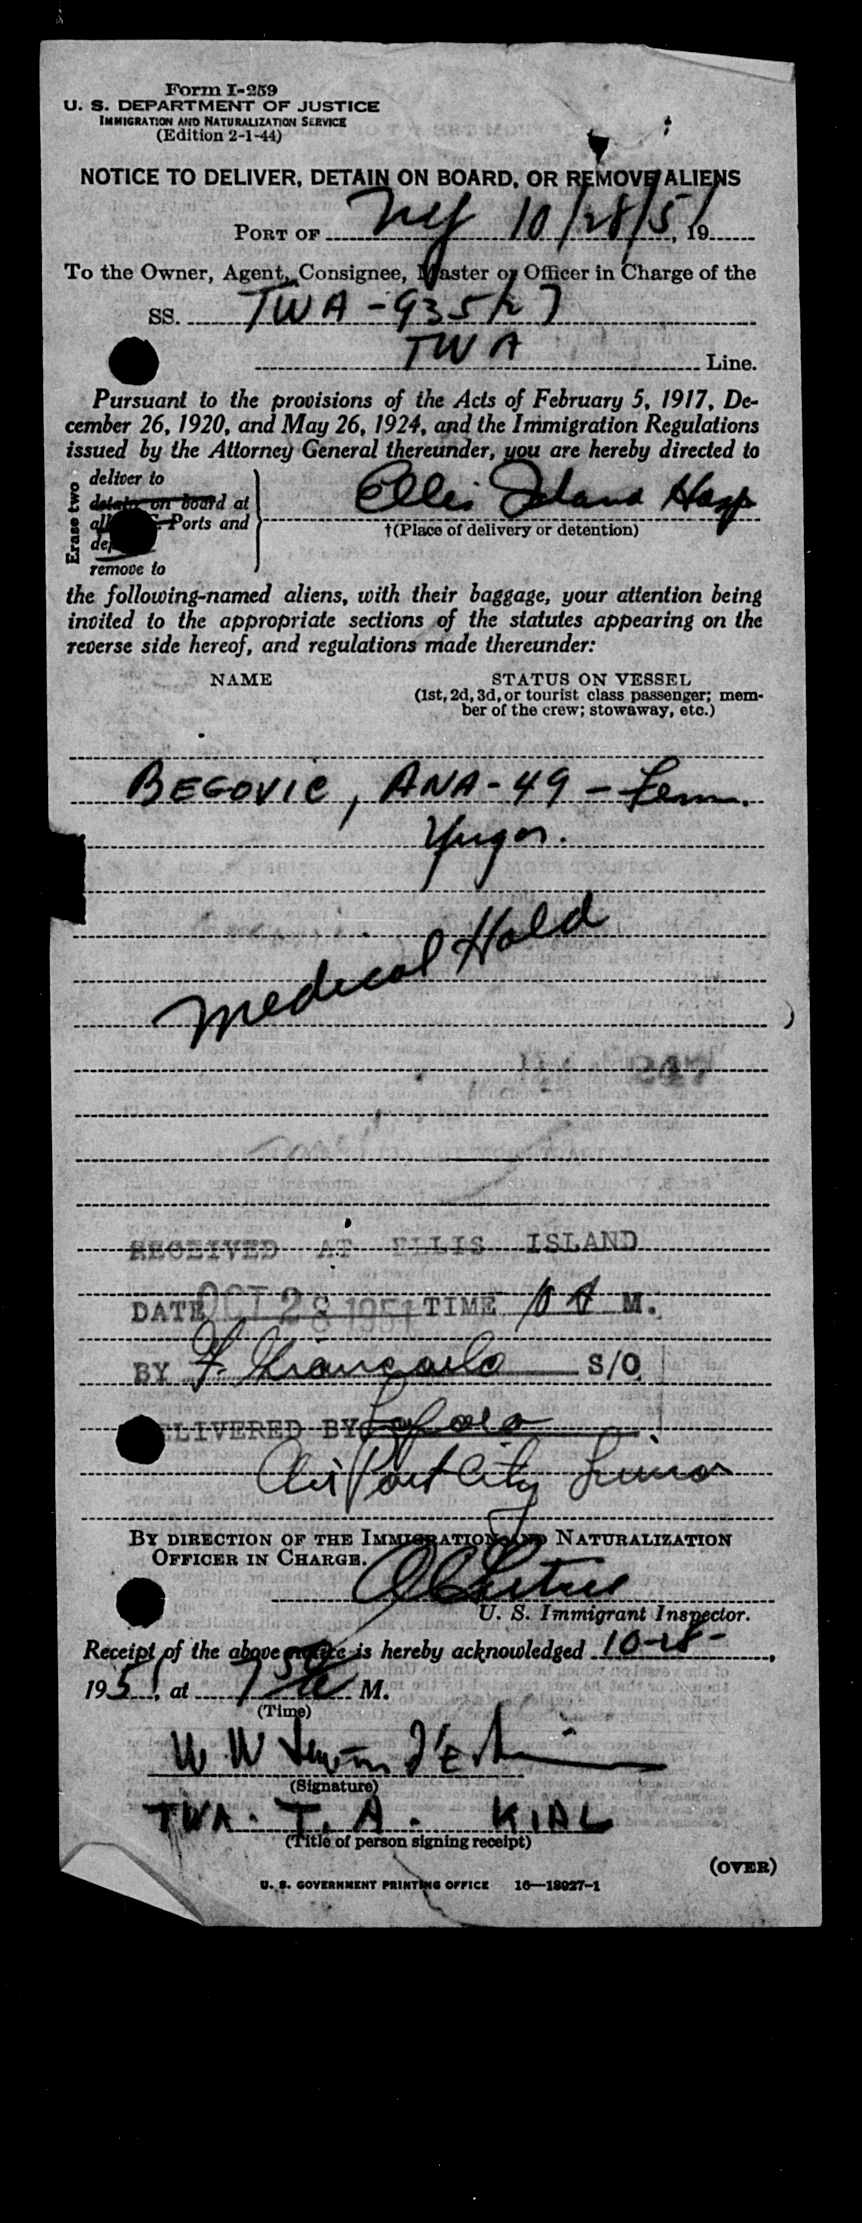 Form I-259
U. S. DEPARTMENT OF JUSTICE
IMMIGRATION AND NATURALIZATION SERVICE
(Edition 2-1-44)
NOTICE TO DELIVER, DETAIN ON BOARD, OR REMOVE ALIENS
PORT OF NY 10/28/51, 19
To the Owner, Agent, Consignee, Master or Officer in Charge of the
SS. TWA-935/27
TWA Line.
Pursuant to the provisions of the Acts of February 5, 1917, De-
cember 26, 1920, and May 26, 1924, and the Immigration Regulations
issued by the Attorney General thereunder, you are hereby directed to
Erase two
deliver to
detain on board at
Ports and
remove to
Ellis Island Hosp
†(Place of delivery or detention)
the following-named aliens, with their baggage, your attention being
invited to the appropriate sections of the statutes appearing on the
reverse side hereof, and regulations made thereunder:
NAME STATUS ON VESSEL
(1st, 2d, 3d, or tourist class passenger; mem-
ber of the crew; stowaway, etc.)
BEGOVIC, ANA - 49 - Fem.
Yugos.
Medical Hold
RECEIVED AT ELLIS ISLAND
DATE OCT 28 1951 TIME 10 A M.
BY F. Giancarlo S/O
DELIVERED BY
Air Port City
BY DIRECTION OF THE IMMIGRATION AND NATURALIZATION
OFFICER IN CHARGE.
U. S. Immigrant Inspector.
Receipt of the above notice is hereby acknowledged 10-28-,
1951, at 7 50 a M.
(Time)
W W
(Signature)
TWA. T. A. KIAL
(Title of person signing receipt)
(OVER)
U. S. GOVERNMENT PRINTING OFFICE 16—18027-1